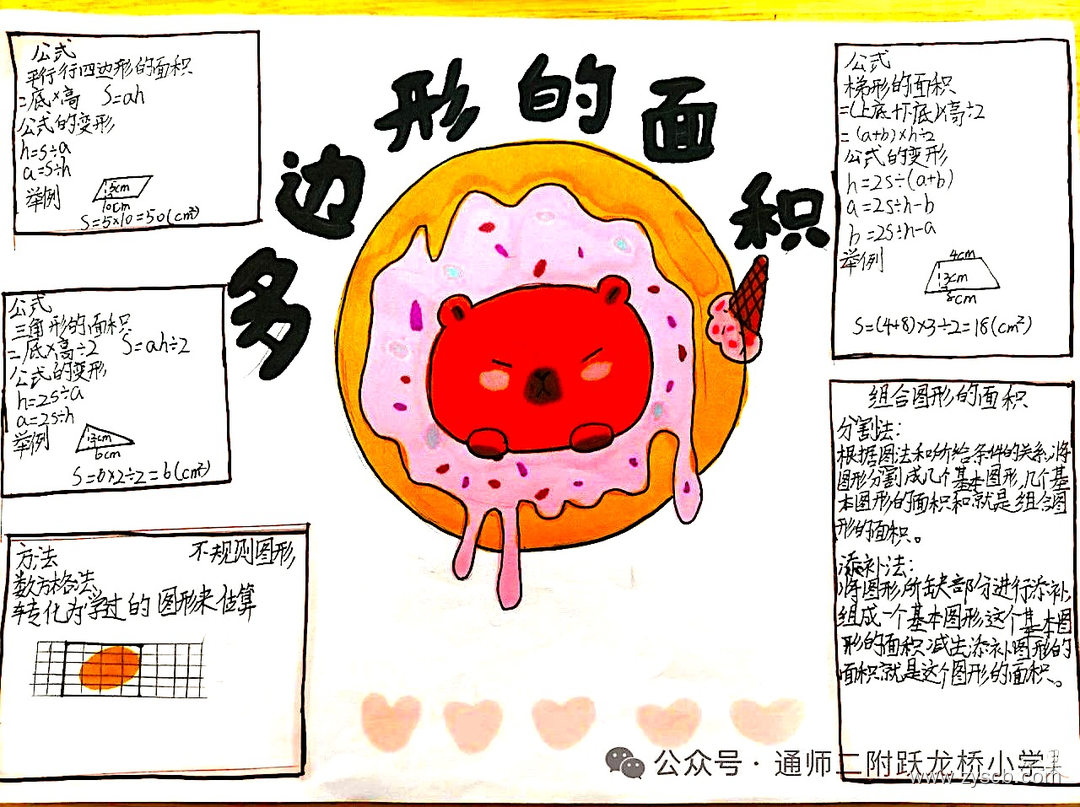 多边形的面积
公式
平行行四边形的面积
=底×高 S=ah
公式的变形
h=S÷a
a=S÷h
举例
5cm
10cm
S=5×10=50(cm²)
公式
三角形的面积
=底×高÷2 S=ah÷2
公式的变形
h=2S÷a
a=2S÷h
举例
6cm
S=6×2÷2=6(cm²)
方法 不规则图形
数方格法
转化为学过的图形来估算
公式
梯形的面积
=(上底+下底)×高÷2
=(a+b)×h÷2
公式的变形
h=2S÷(a+b)
a=2S÷h-b
b=2S÷h-a
举例
4cm
3cm
8cm
S=(4+8)×3÷2=18(cm²)
组合图形的面积
分割法:
根据图法和所给条件的关系,将
图形分割成几个基本图形,几个基
本图形的面积和就是组合图
形的面积。
添补法:
将图形所缺部分进行添补,
组成一个基本图形,这个基本图
形的面积减去添补图形的
面积就是这个图形的面积。
公众号·通师二附跃龙桥小学
www.zyscb.com